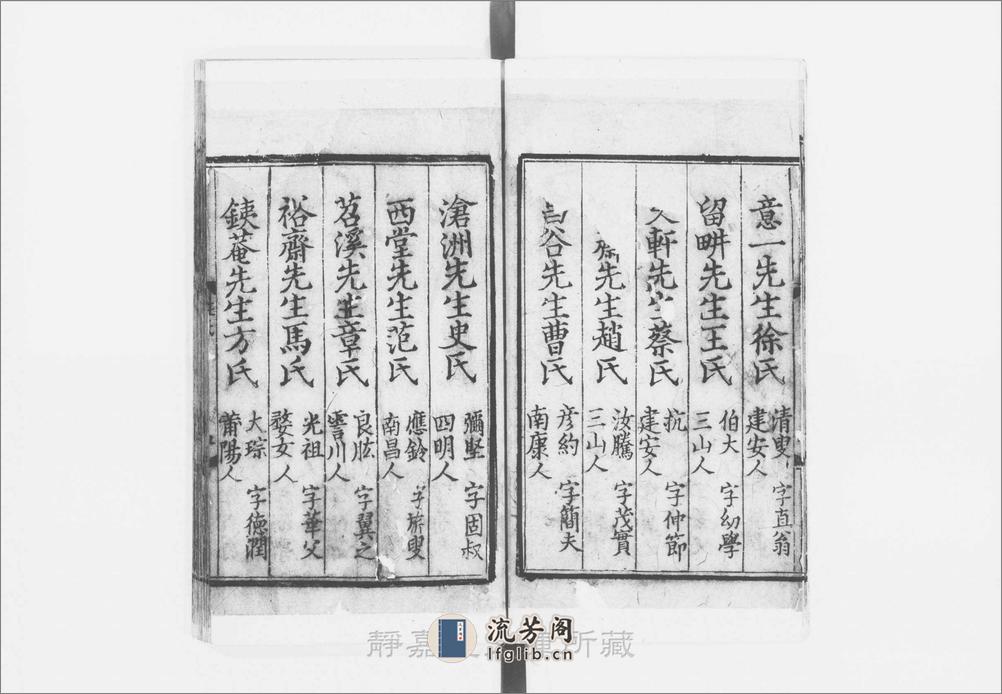 意一先生徐氏 清叟 字直翁 建安人
留畊先生王氏 伯大 字幼學 三山人
久軒先生蔡氏 抗 字仲節 建安人
先生趙氏 汝騰 字茂實 三山人
谷先生曹氏 彥約 字簡夫 南康人
滄洲先生史氏 彌堅 字固叔 四明人
西堂先生范氏 應鈴 字旂叟 南昌人
苕溪先生章氏 良肱 字翼之 霅川人
裕齋先生馬氏 光祖 字華父 婺女人
鐵菴先生方氏 大琮 字德潤 莆陽人
靜嘉 所藏
流芳阁
lfglib.cn